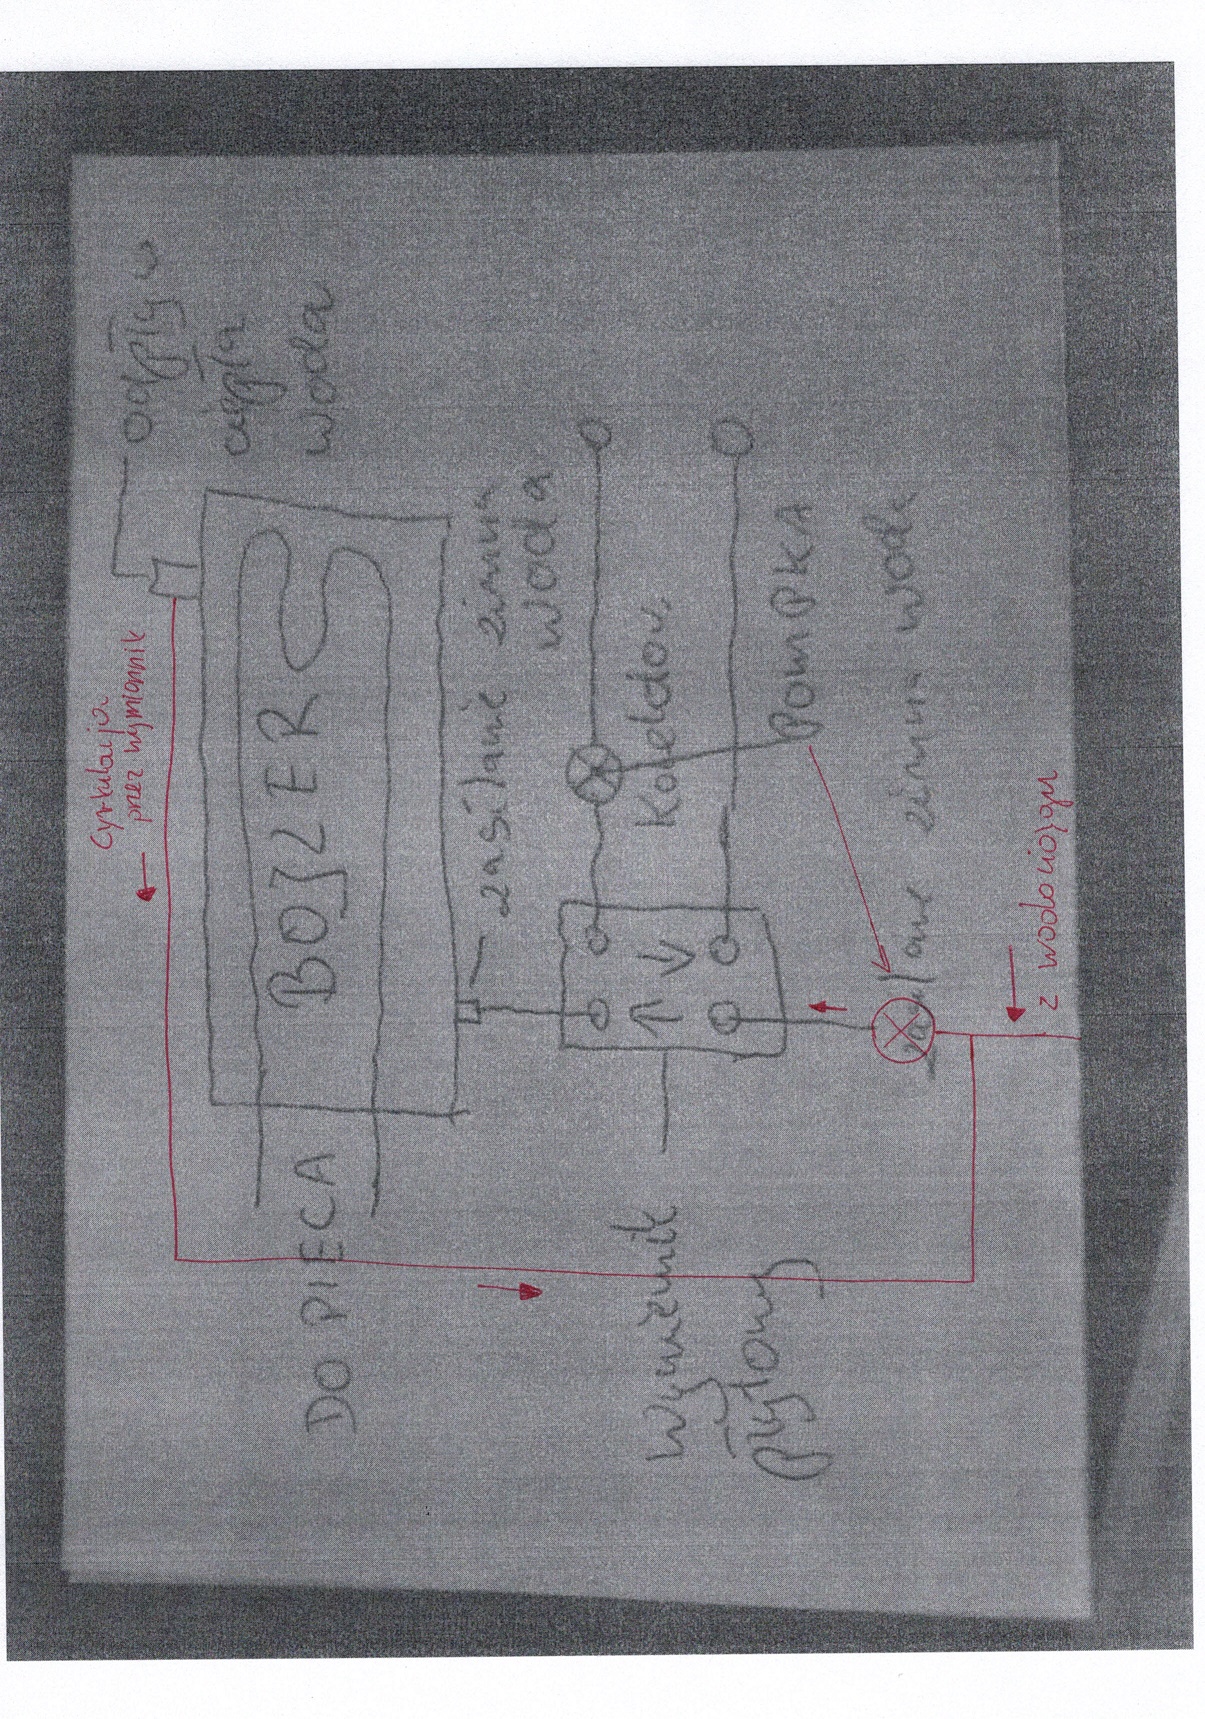 odpływ
ciepła
woda
Cyrkulacja
przez wymiennik
BOJLER
zasilanie zimna
woda
DO PIECA
POMPKA
zimna woda
z wodociągu
Wymiennik
płytowy